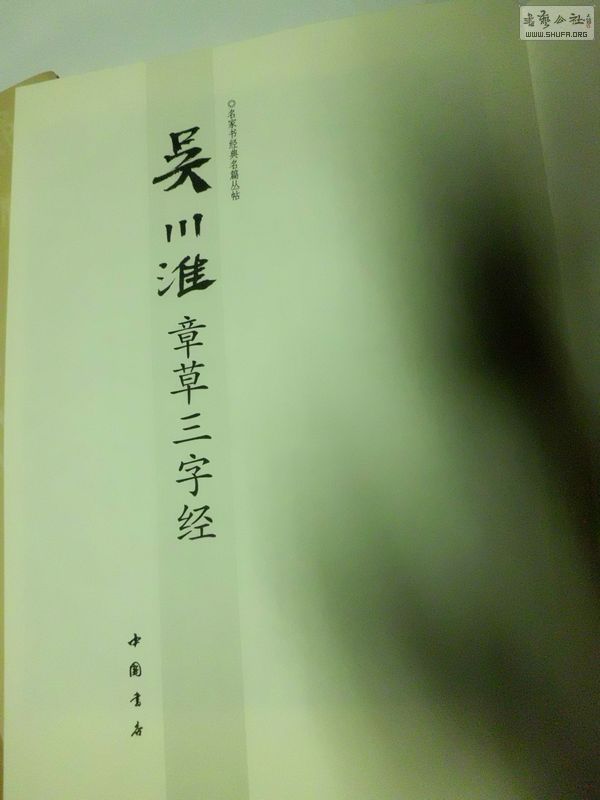 ◎名家书经典名篇丛帖
吴川淮
章草三字经
中国书店
书艺公社
WWW.SHUFA.ORG